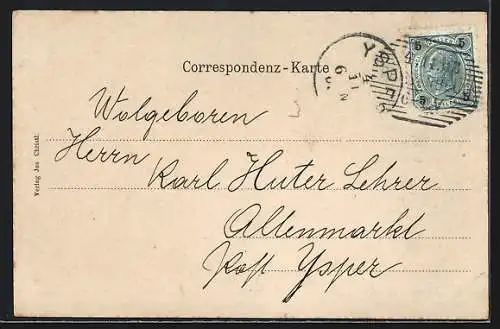 Correspondenz-Karte
YSPER
5 5
5 5
Wolgeboren
Herrn Karl Huter Lehrer
Altenmarkt
Post Ysper
Verlag Jos Christl.